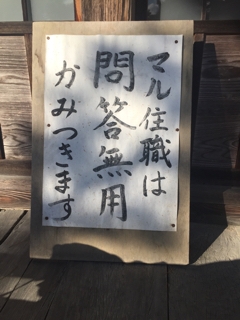 マル住職は
問答無用
かみつきます